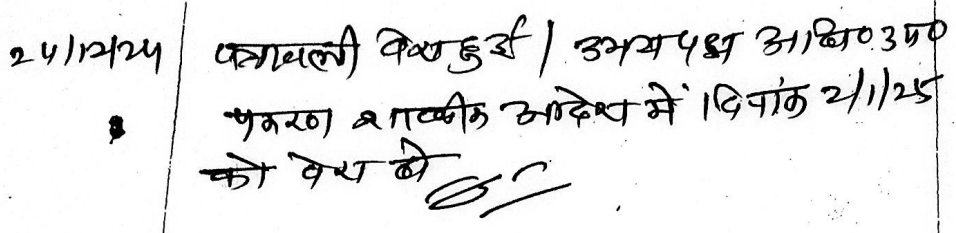 24/12/24 पत्रावली पेश हुई। उभयपक्ष अधि० उप०
प्रकरण शासकीय आदेश में। दिनांक 2/1/25
को पेश हो